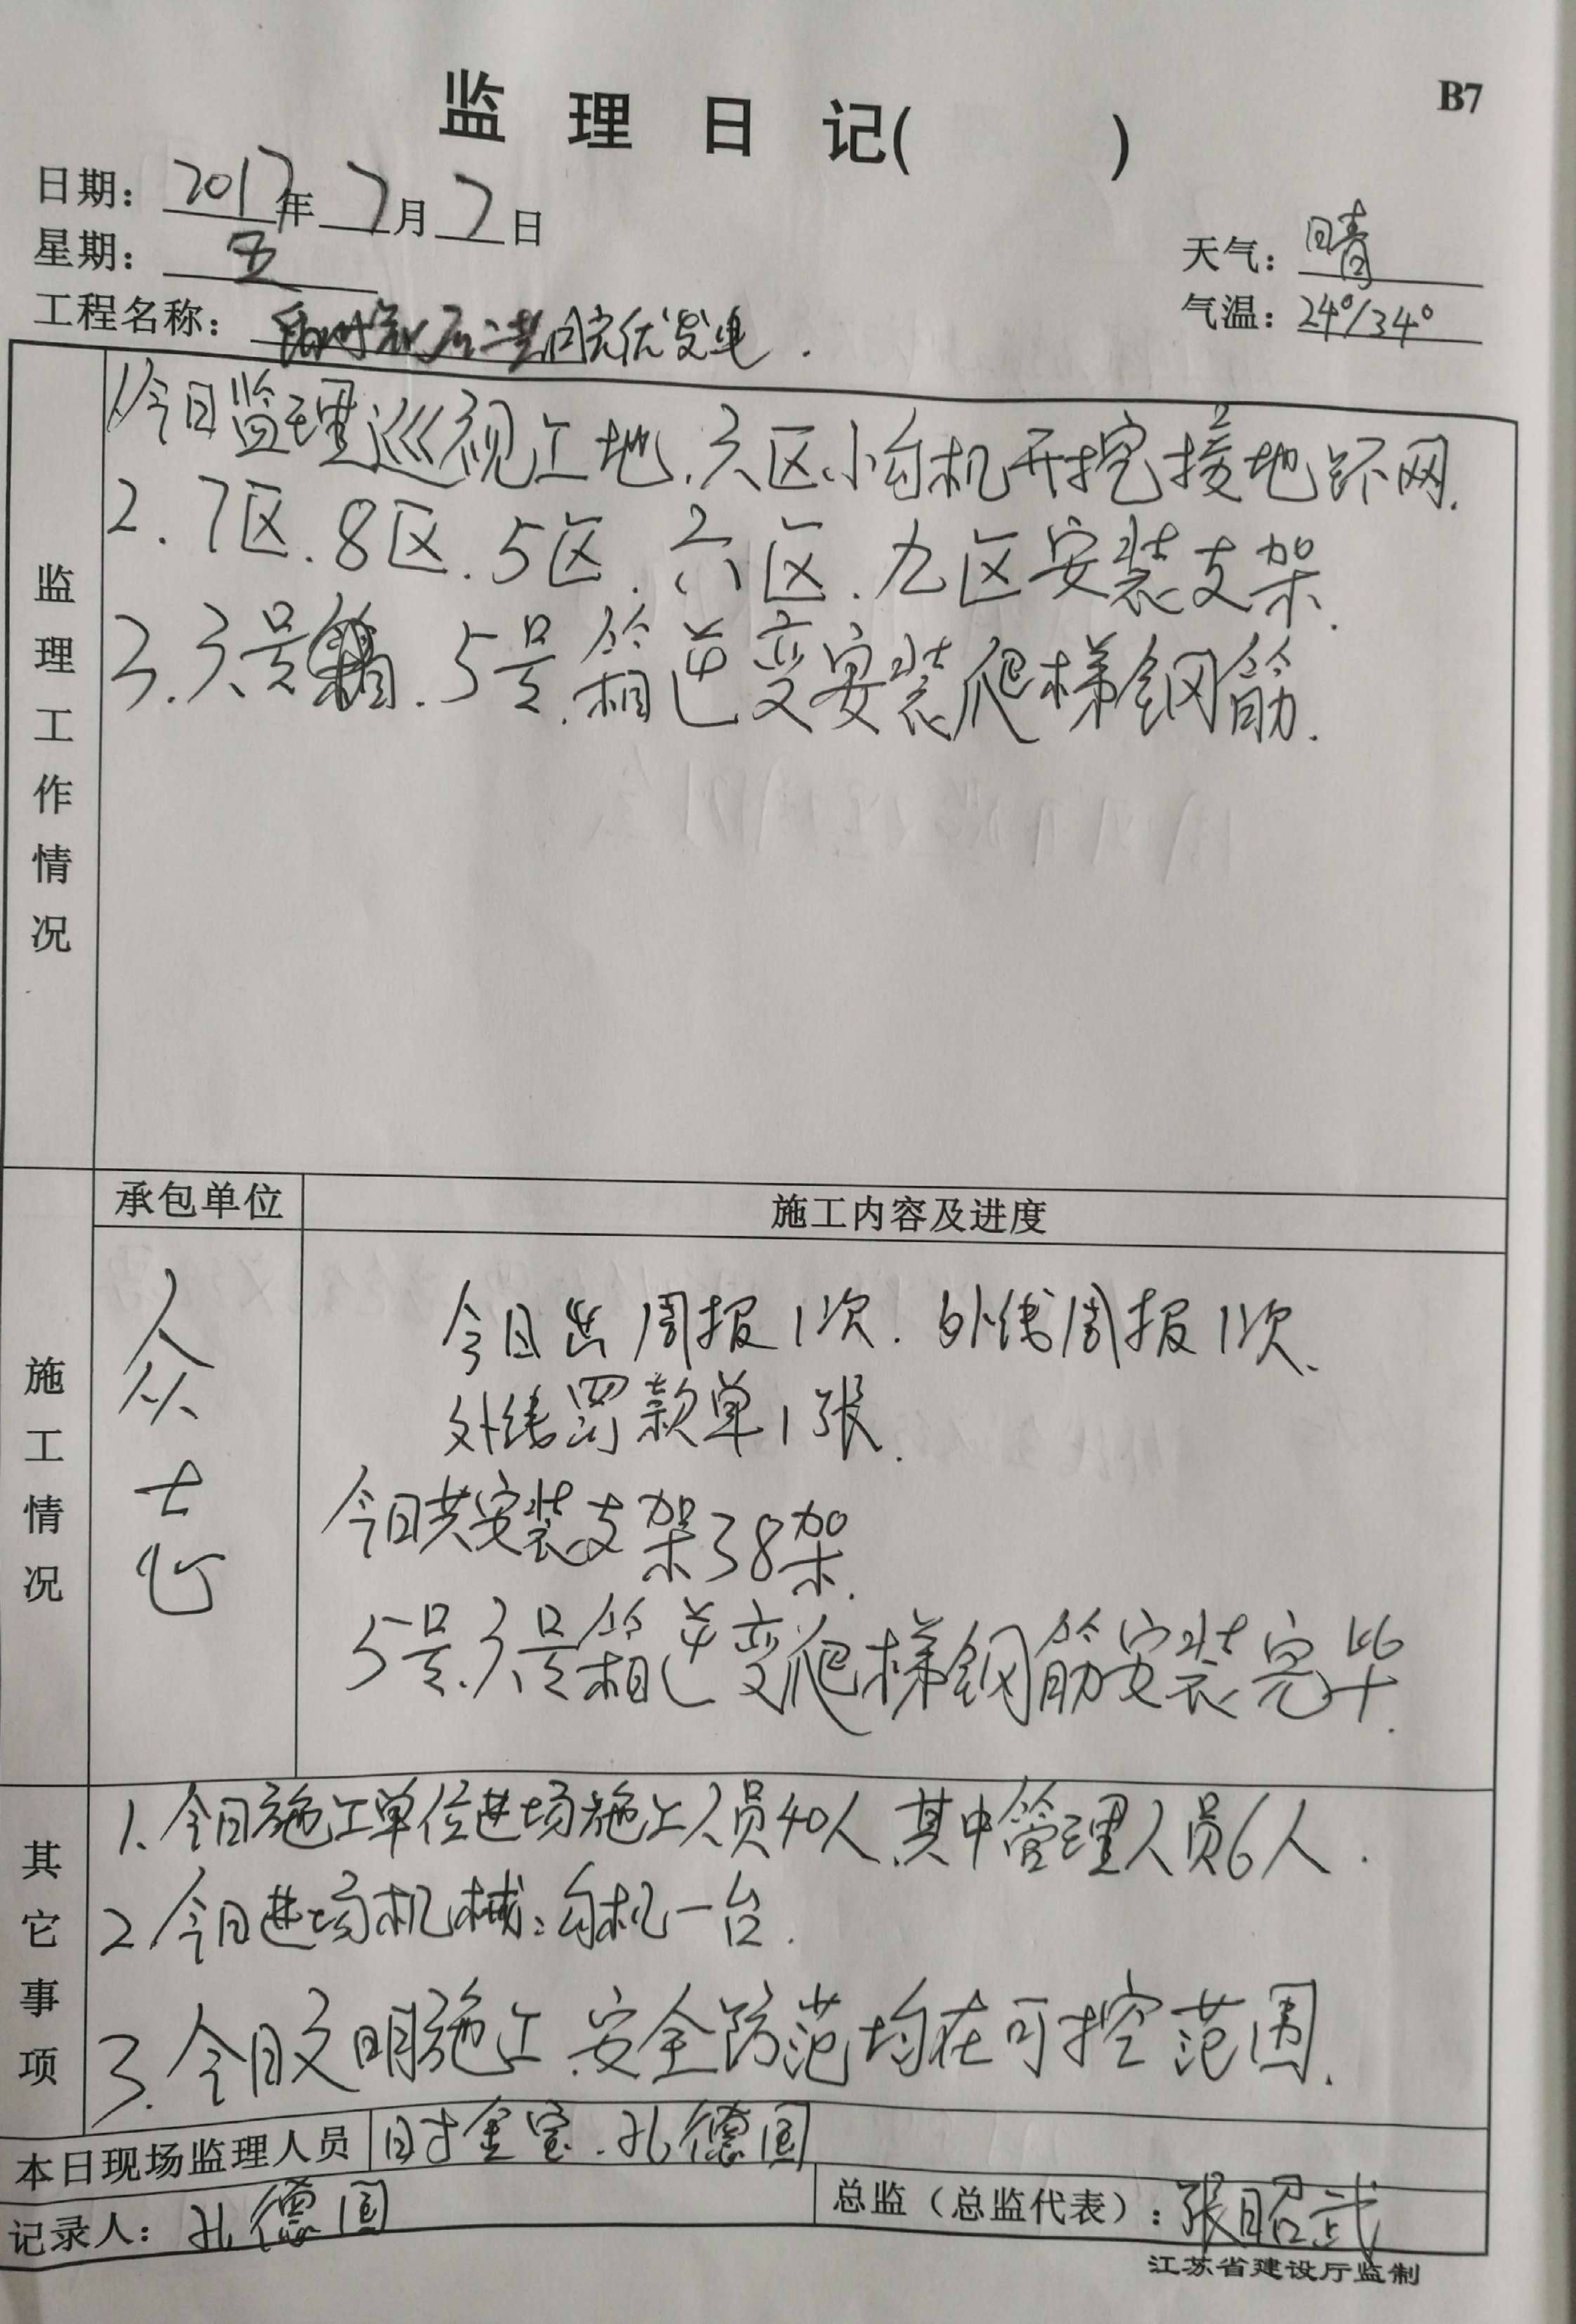 B7
监理日记( )
日期: 2017年7月7日
星期: 五
天气: 晴
工程名称: 发电.
气温: 24°/34°
监理工作情况
1、今日监理巡视工地.六区小勾机开挖接地环网.
2.7区.8区.5区.六区.九区安装支架.
3.3号箱.5号.箱逆变安装爬梯钢筋.
承包单位
施工内容及进度
施工情况
众志
今日出周报1次.外线周报1次.
外线罚款单1张.
今日共安装支架38架.
5号.3号箱逆变爬梯钢筋安装完毕.
其它事项
1、今日施工单位进场施工人员40人.其中管理人员6人.
2、今日进场机械:勾机一台.
3.今日文明施工.安全防范均在可控范围.
本日现场监理人员 时金宝.孔德国
记录人: 孔德国
总监(总监代表): 张昭武
江苏省建设厅监制